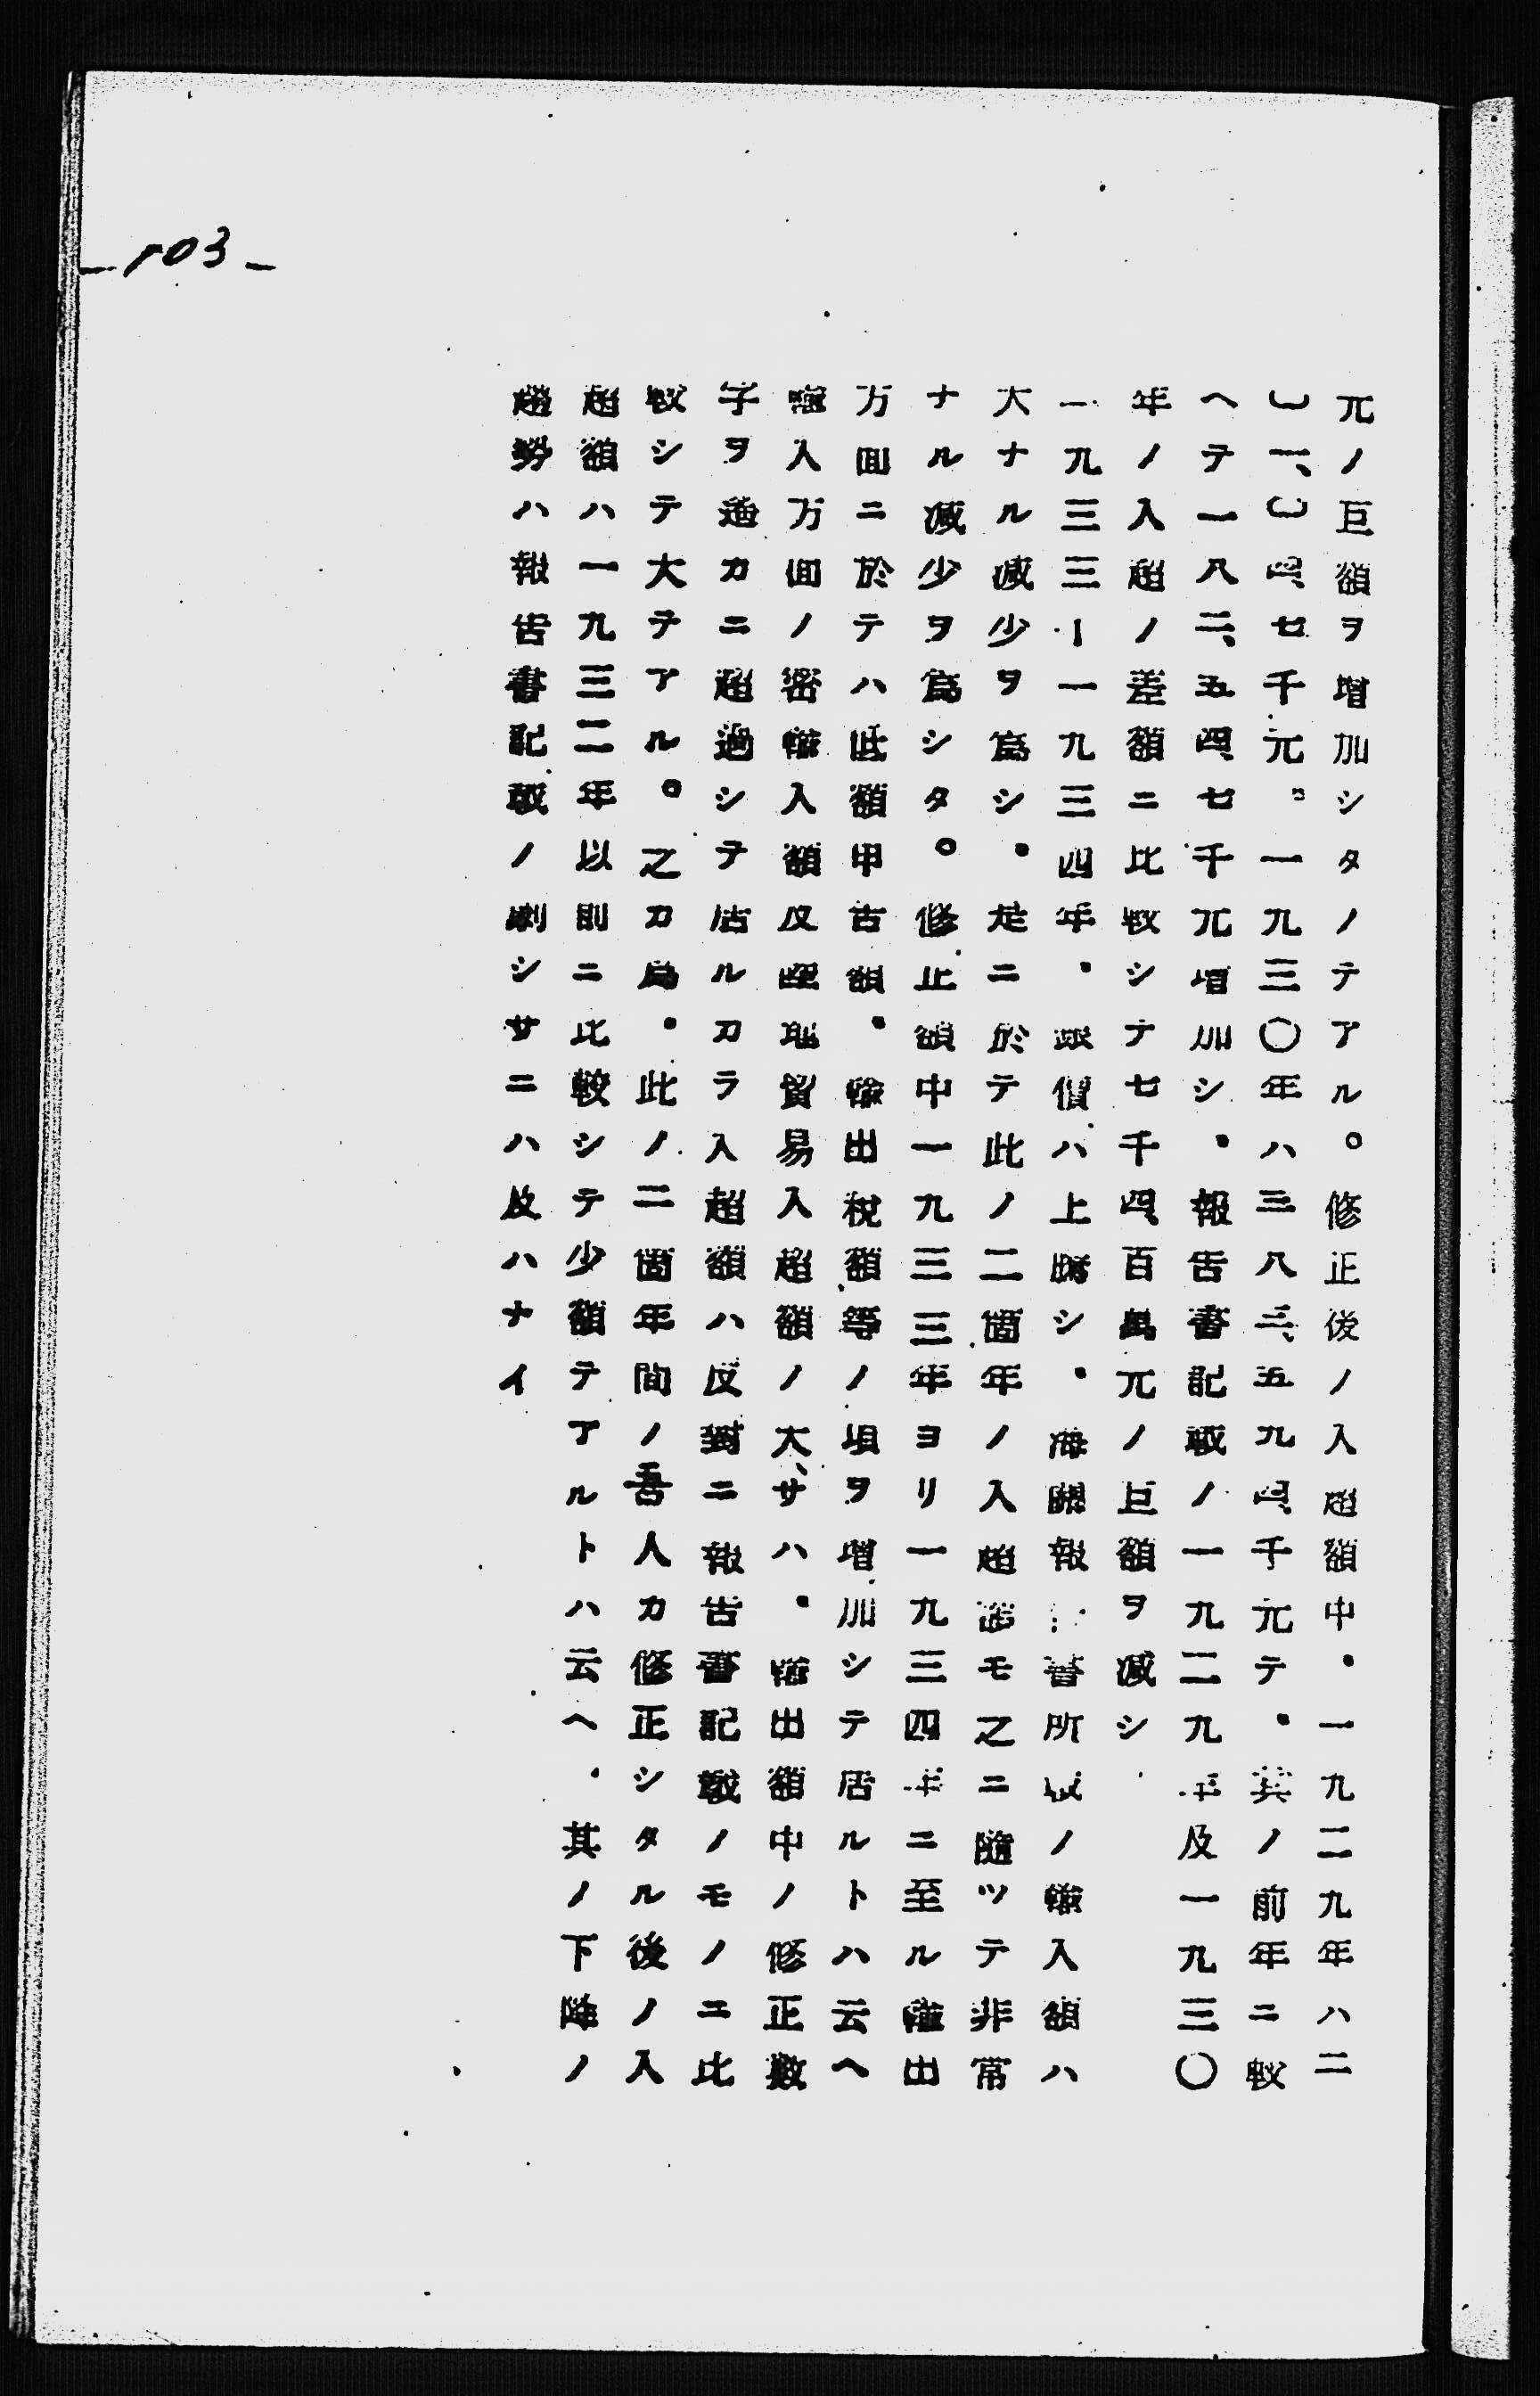 -103-
元ノ巨額ヲ増加シタノテアル。修正後ノ入超額中・一九二九年ハ二
〇一、〇四、七千元。一九三〇年ハ三八三、五九四、千元テ・其ノ前年ニ較
ヘテ一八二、五四、七千元増加シ・報告書記載ノ一九二九年及一九三〇
年ノ入超ノ差額ニ比較シテ七千四、百萬元ノ巨額ヲ減シ・
一九三三ー一九三四年・銀價ハ上騰シ・海關報 書所載ノ輸入額ハ
大ナル減少ヲ爲シ・是ニ於テ此ノ二箇年ノ入超 モ之ニ隨ツテ非常
ナル減少ヲ爲シタ。修正額中一九三三年ヨリ一九三四年ニ至ル輸出
方面ニ於テハ低額申告額・輸出税額等ノ項ヲ増加シテ居ルトハ云ヘ
輸入方面ノ密輸入額及 地貿易入超額ノ大、サハ・輸出額中ノ修正數
字ヲ遙カニ超過シテ居ルカラ入超額ハ反對ニ報告書記載ノモノニ比
較シテ大テアル。之カ爲・此ノ二箇年間ノ吾人カ修正シタル後ノ入
超額ハ一九三二年以前ニ比較シテ少額テアルトハ云ヘ・其ノ下降ノ
趨勢ハ報告書記載ノ劇シサニハ及ハナイ